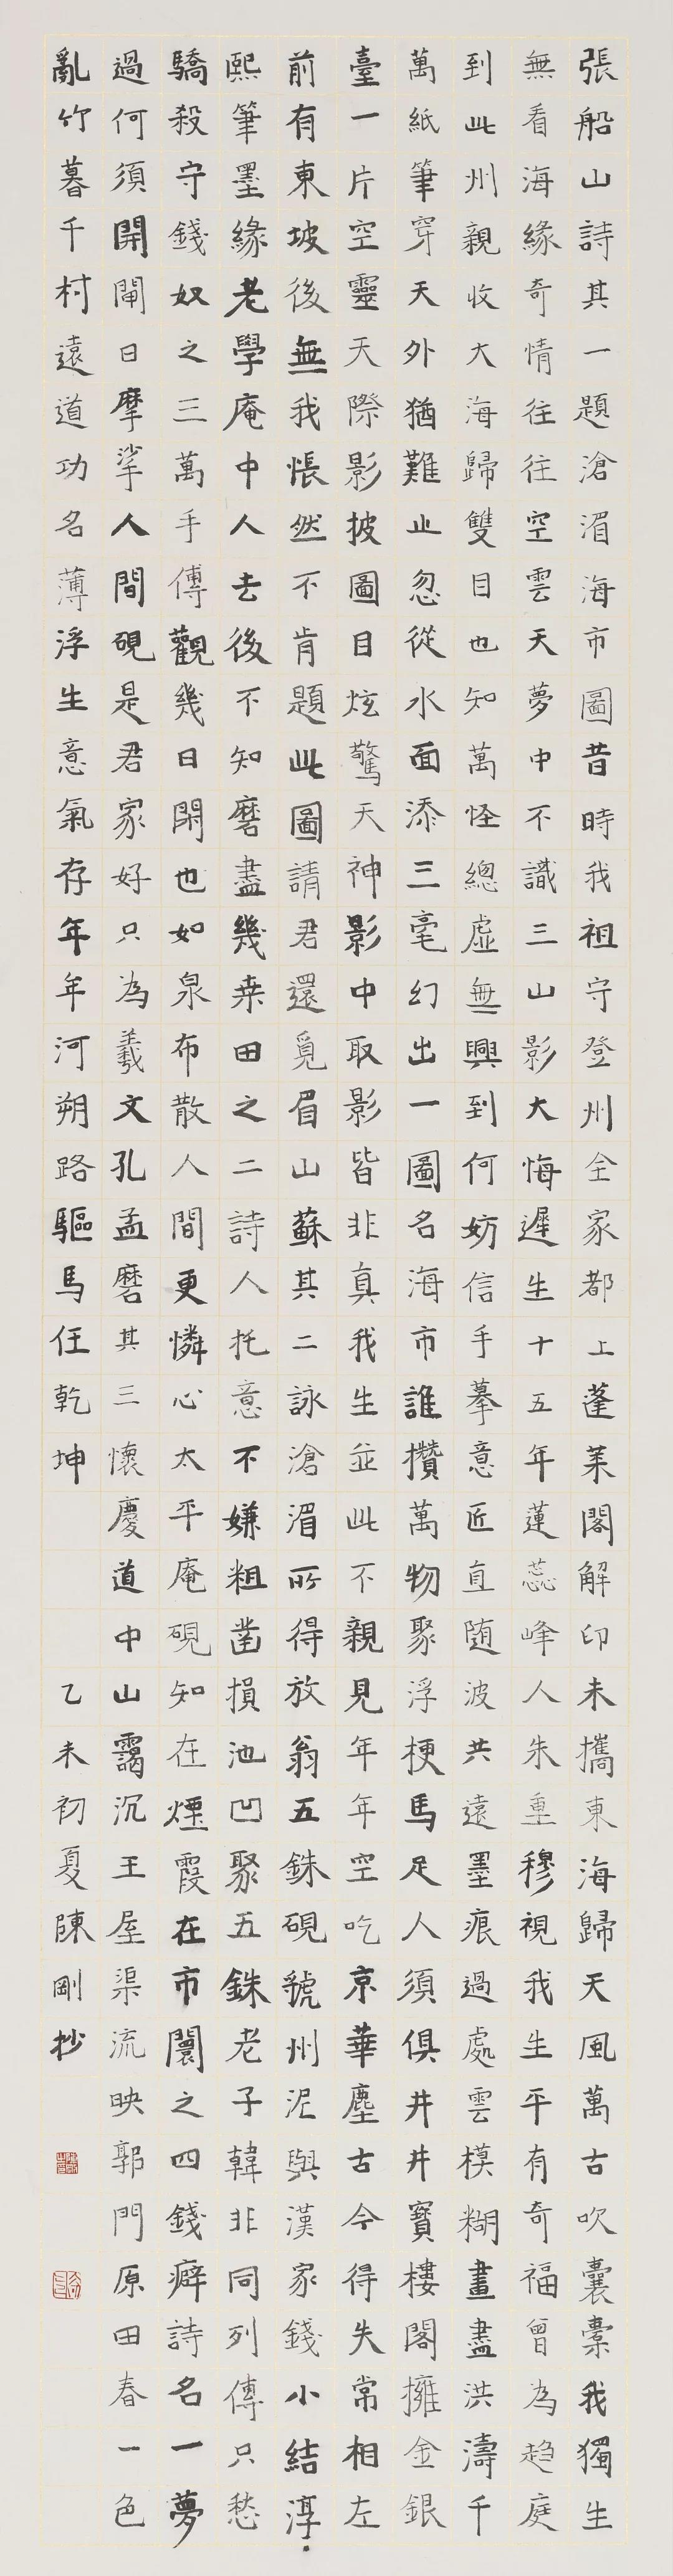 張船山詩其一題滄湄海市圖昔時我祖守登州全家都上蓬莱閣解印未攜東海歸天風萬古吹囊橐我獨生
無看海緣奇情往往空雲天夢中不識三山影大悔遲生十五年蓮蕊峰人朱重穆視我生平有奇福曾為趋庭
到此州親收大海歸雙目也知萬怪總虛無興到何妨信手摹意匠直随波共遠墨痕過處雲模糊畫盡洪濤千
萬紙筆穿天外猶難止忽從水面添三毫幻出一圖名海市誰攢萬物聚浮梗馬足人須俱井井寶樓閣擁金銀
臺一片空靈天際影披圖目炫驚天神影中取影皆非真我生並此不親見年年空吃京華塵古今得失常相左
前有東坡後無我悵然不肯題此圖請君還覓眉山蘇其二詠滄湄所得放翁五銖硯虢州泥與漢家錢小結淳
熙筆墨緣老學庵中人去後不知磨盡幾桒田之二詩人托意不嫌粗凿損池凹聚五銖老子韓非同列傳只愁
驕殺守錢奴之三萬手傳觀幾日閑也如泉布散人間更憐心太平庵硯知在煙霞在市闤之四錢癖詩名一夢
過何須開閘日摩挲人間硯是君家好只為羲文孔孟磨其三懷慶道中山靄沉王屋渠流映郭門原田春一色
亂竹暮千村遠道功名薄浮生意氣存年年河朔路驅馬任乾坤
乙未初夏陳剛抄